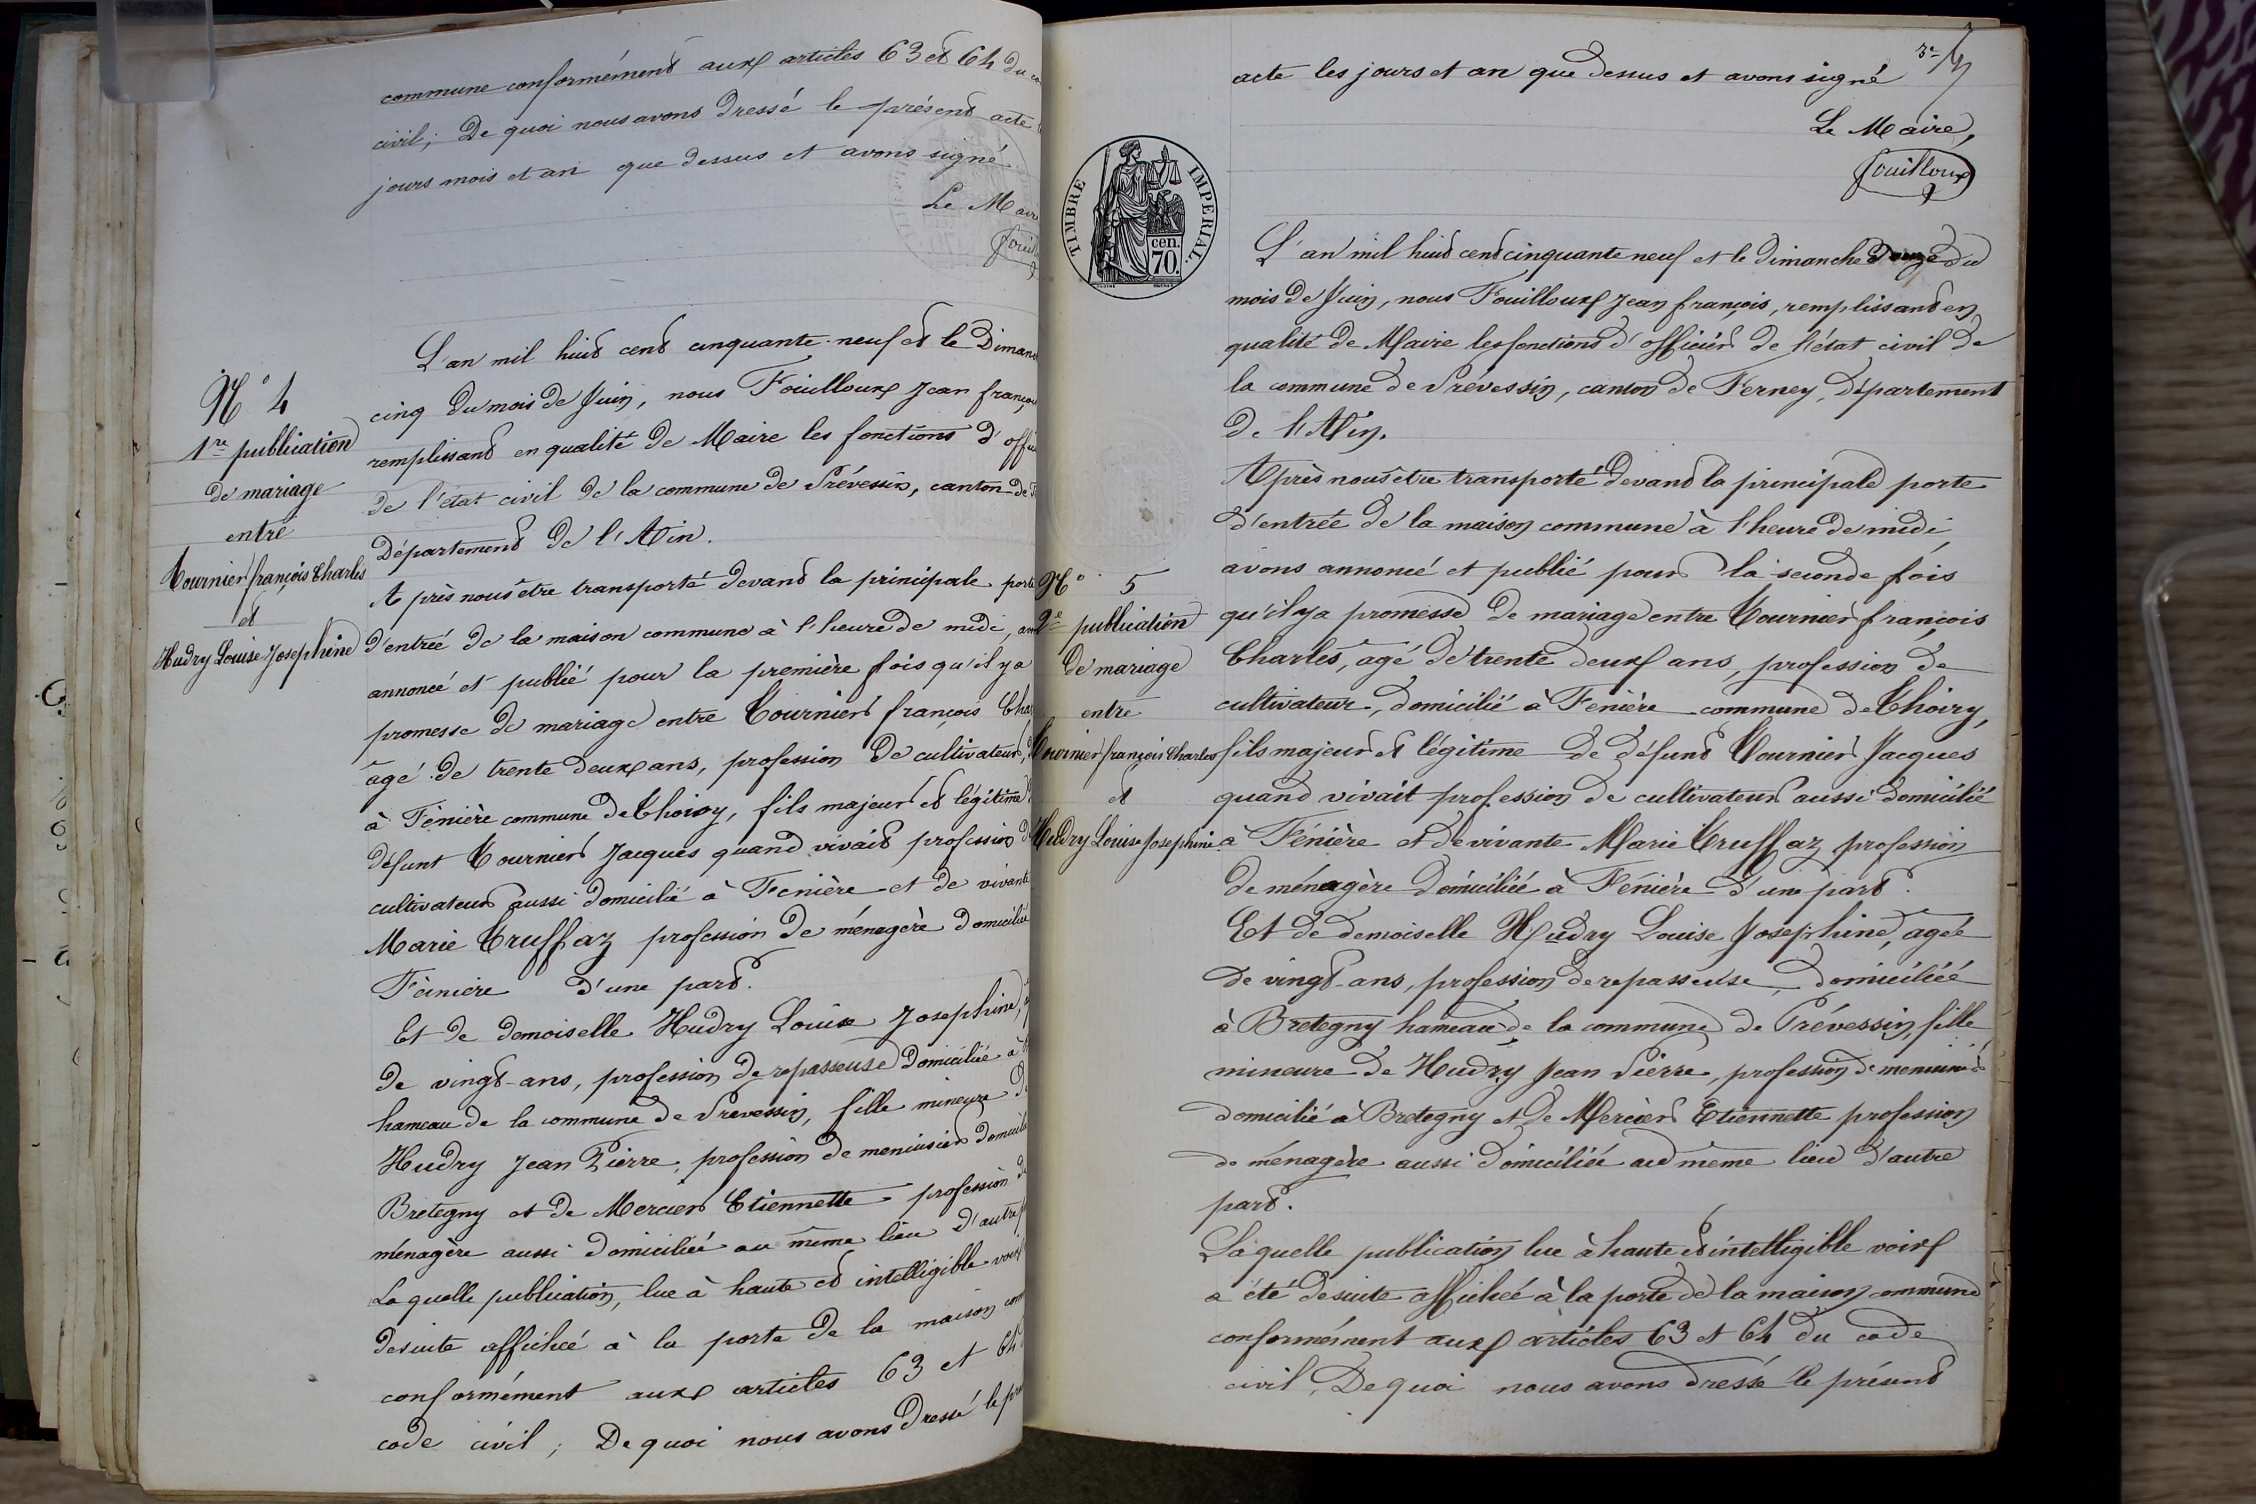 commune conformément aux articles 63 et 64 du
civil; De quoi nous avons dressé le présent acte
jours mois et an que dessus et avons signé
Le Mair
N° 4
1re publication
de mariage
entre
Tournier françois Charles
et
Hudry Louise Josephine
L'an mil huit cent cinquante-neuf et le Diman
cinq du mois de Juin, nous Fouilloux Jean françoi
remplissant en qualité de Maire les fonctions d'offici
de l'état civil de la commune de Prévessin, canton de
Département de l'Ain.
Après nous être transporté devant la principale porte
d'entrée de la maison commune à l'heure de midi,
annoncé et publié pour la première fois qu'il y a
promesse de mariage entre Tournier françois Cha
âgé de trente deux ans, profession de cultivateur,
à Fenière commune de Thoiry, fils majeur et légitime
défunt Tournier Jacques quand vivait profession d
cultivateur aussi domicilié à Fenière et de vivante
Marie Truffaz profession de ménagère domiciliée
Fèniere d'une part.
Et de demoiselle Hudry Louise Josephine,
de vingt-ans, profession de repasseuse domiciliée à
hameau de la commune de Prevessin, fille mineure d
Hudry Jean Pierre, profession de menuisier domicili
Bretegny et de Mercier Etiennette profession d
ménagère aussi domiciliée au même lieu d'autre p
Laquelle publication, lue à haute et intelligible voix
desuite affichée à la porte de la maison com
conformément aux articles 63 et 64
code civil; De quoi nous avons dressé le pré
3e
acte les jours et an que dessus et avons signé
Le Maire,
Fouilloux
TIMBRE IMPERIAL.
cen.
70.
L'an mil huit cent cinquante neuf et le dimanche douze du
mois de Juin, nous Fouilloux Jean françois, remplissant en
qualité de Maire les fonctions d'officier de l'état civil de
la commune de Prévessin, canton de Ferney, Département
de l'Ain.
Après nous être transporté devant la principale porte
d'entrée de la maison commune à l'heure de midi
avons annoncé et publié pour la seconde fois
qu'il y a promesse de mariage entre Tournier françois
Charles, âgé de trente deux ans, profession de
cultivateur, domicilié à Fenière commune de Thoiry,
fils majeur et légitime de défunt Tournier Jacques
quand vivait profession de cultivateur aussi domicilié
à Fénière et de vivante Marie Truffaz profession
de ménagère domiciliée à Fénière d'une part.
N° 5
2e publication
de mariage
entre
Tournier françois Charles
et
Hudry Louise Josephine
Et de demoiselle Hudry Louise Josephine, agée
de vingt-ans, profession de repasseuse, domiciliée
à Bretegny hameau de la commune de Prévessin, fille
mineure de Hudry Jean Pierre, profession de menuisier
domicilié à Bretegny et de Mercier Etiennette profession
de ménagère aussi domiciliée au même lieu d'autre
part.
Laquelle publication lue à haute et intelligible voix
a été desuite affichée à la porte de la maison commune
conformément aux articles 63 et 64 du code
civil, De quoi nous avons dressé le présent